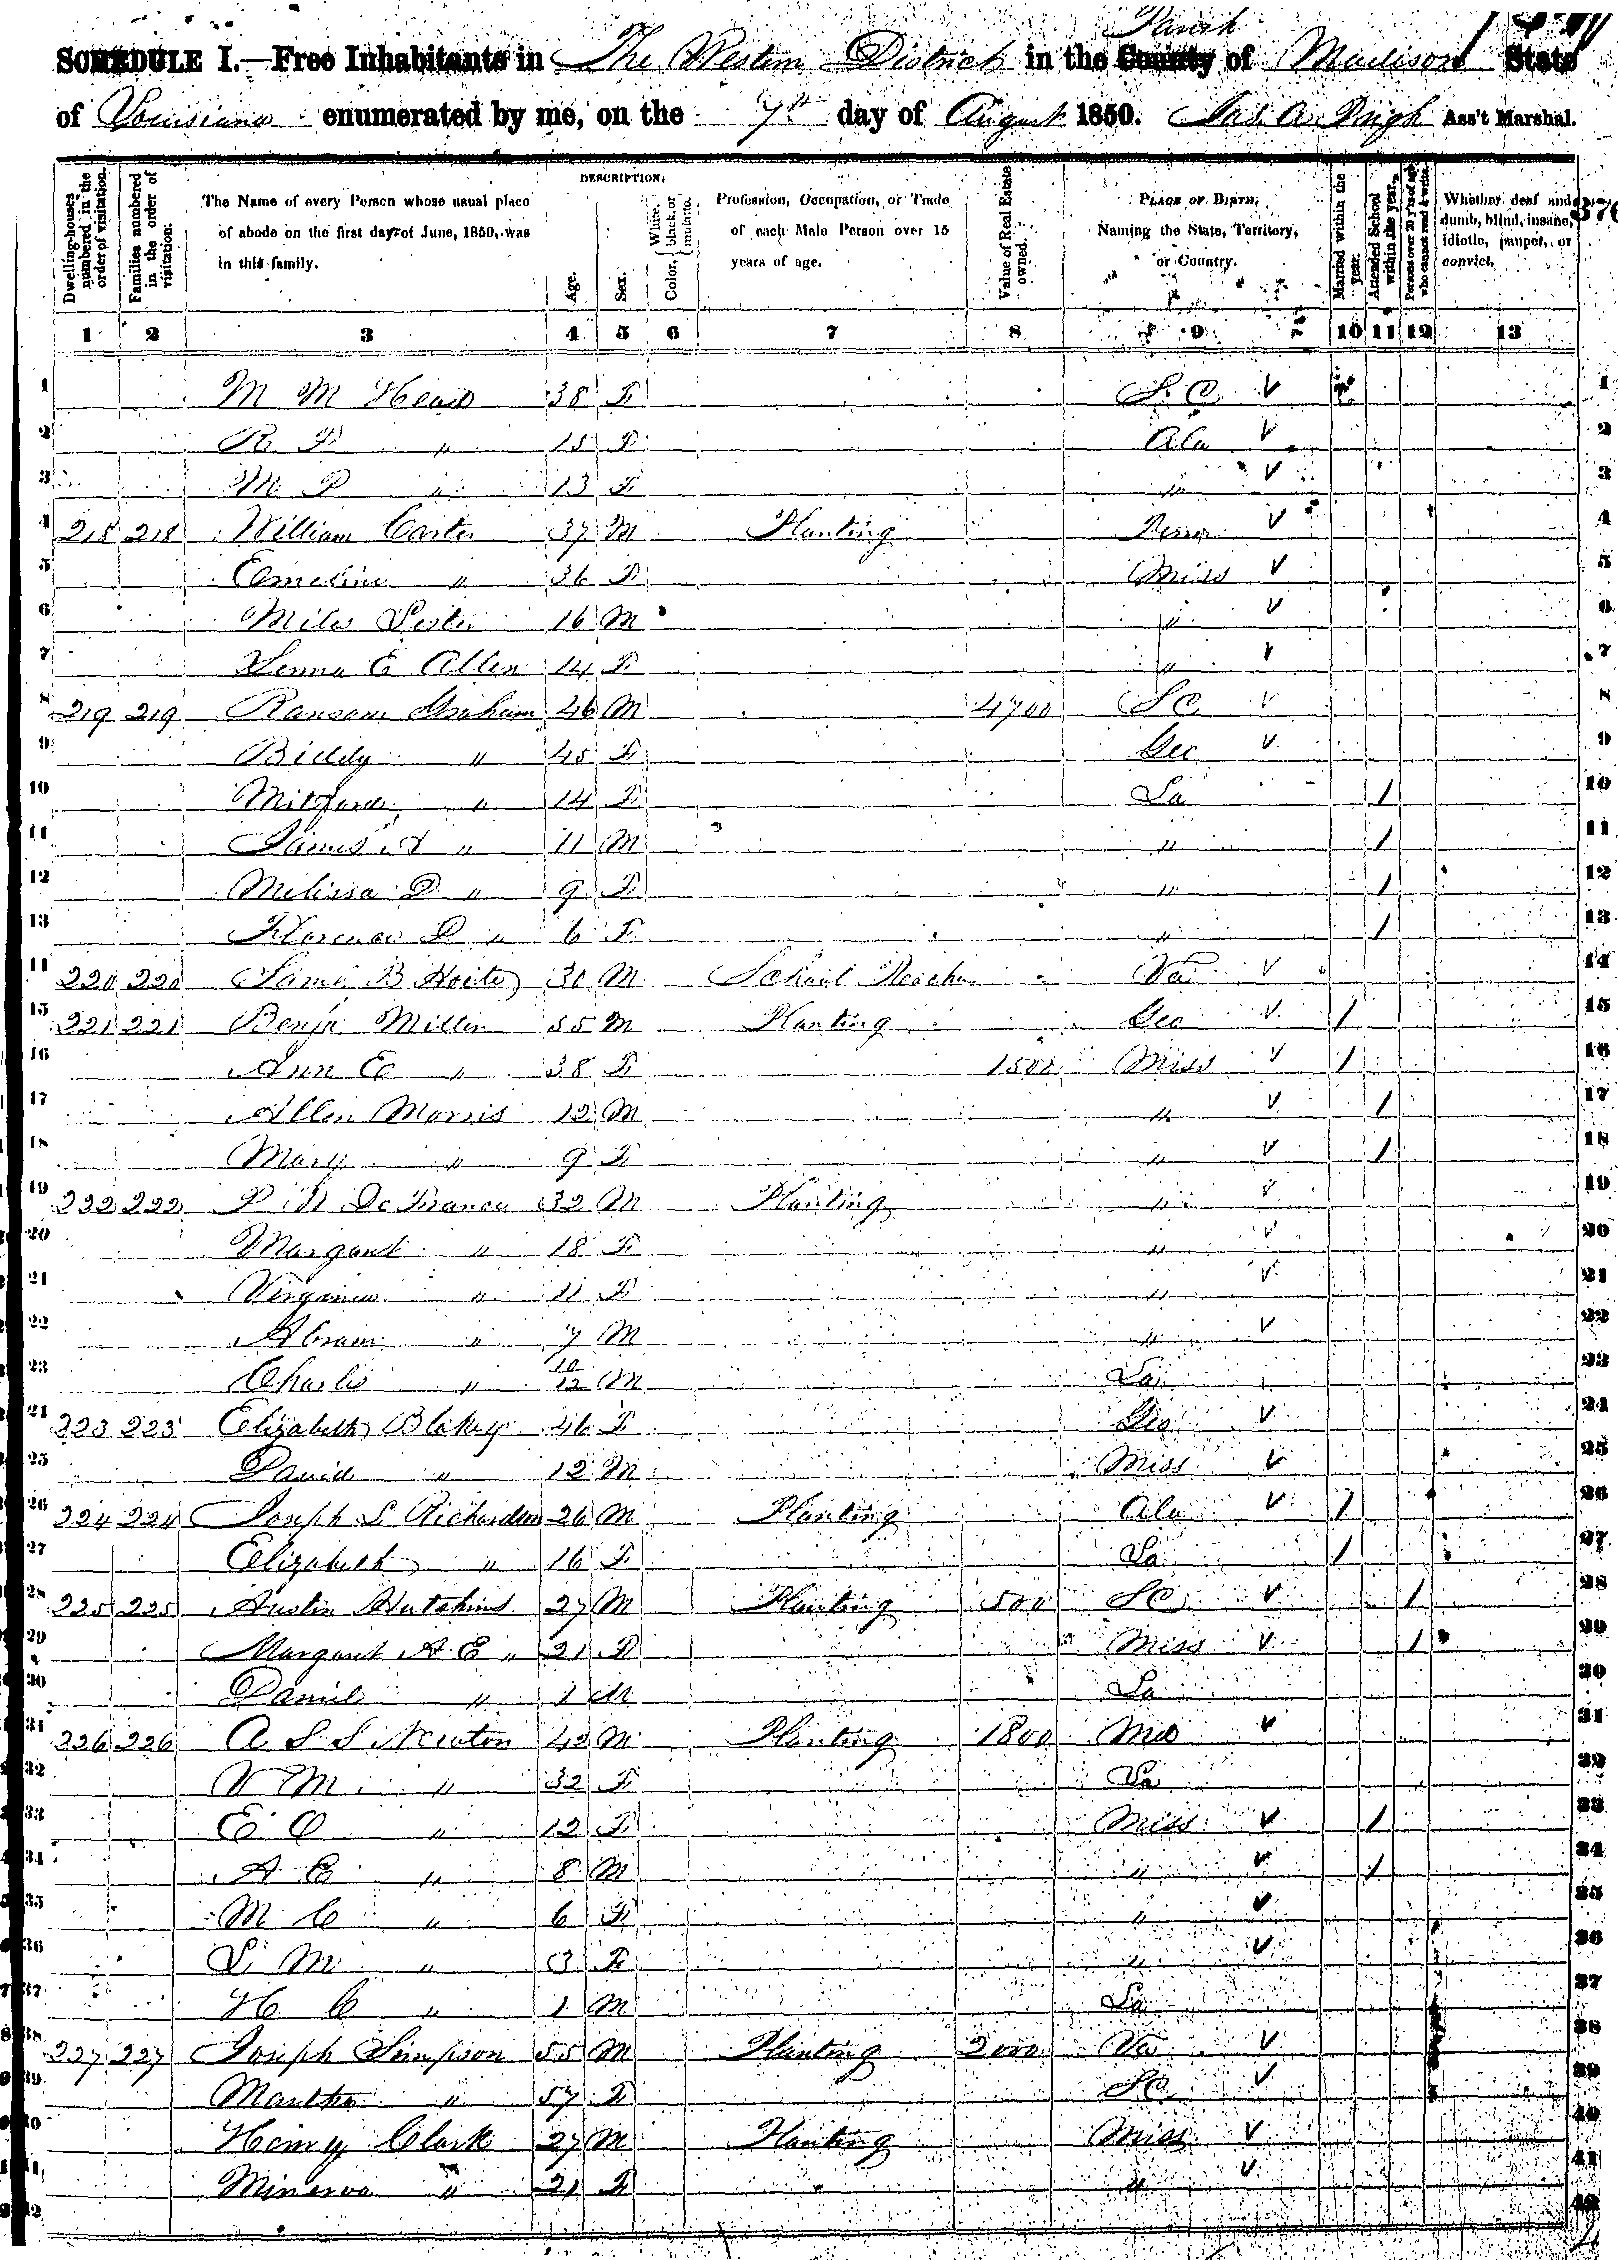 Parish
SCHEDULE I.—Free Inhabitants in The Western District in the County of Madison State
of Louisiana enumerated by me, on the 7th day of August 1850. Jas. A. Ass't Marshal.
DESCRIPTION.
Dwelling-houses numbered in the order of visitation.
Families numbered in the order of visitation.
The Name of every Person whose usual place of abode on the first day of June, 1850, was in this family.
Age.
Sex.
Color, { White, black, or mulatto.
Profession, Occupation, or Trade of each Male Person over 15 years of age.
Value of Real Estate owned.
PLACE OF BIRTH, Naming the State, Territory, or Country.
Married within the year.
Attended School within the year.
Persons over 20 y'rs of age who cannot read & write.
Whether deaf and dumb, blind, insane, idiotic, pauper, or convict.
1 2 3 4 5 6 7 8 9 10 11 12 13
1 M M Head 38 F S. C V 1
2 R F " 15 F Ala V 2
3 M P " 13 F " V 3
4 218 218 William Carter 37 M Planting Tenn V 4
5 Emeline " 36 F Miss V 5
6 Miles 16 M " V 6
7 E Allen 14 F " V 7
8 219 219 Ransom Graham 46 M 4700 S C V 8
9 Biddy " 45 F Geo V 9
10 " 14 F La 1 10
11 James A " 11 M " 1 11
12 Melissa D " 9 F " 1 12
13 Florence D " 6 F " 1 13
14 220 220 B 30 M School Teacher Va V 14
15 221 221 Benjn Miller 55 M Planting Geo V 1 15
16 Ann E " 38 F 1500 Miss V 1 16
17 Allen Morris 12 M " V 1 17
18 Mary " 9 F " V 1 18
19 222 222 P N De France 32 M Planting " V 19
20 Margaret " 18 F " V 20
21 Virginia " 11 F " V 21
22 Abram " 7 M " V 22
23 Charles " 10/12 M La 23
24 223 223 Elizabeth Blakey 46 F Geo V 24
25 David " 12 M Miss V 25
26 224 224 Joseph S Richardson 26 M Planting Ala V 1 26
27 Elizabeth " 16 F La 1 27
28 225 225 Austin Hutchins 27 M Planting 500 S C V 1 28
29 Margaret A E " 21 F Miss V 1 29
30 Daniel " 1 M La 30
31 226 226 A S S Newton 42 M Planting 1800 Md V 31
32 V M " 32 F La 32
33 E C " 12 F Miss V 1 33
34 A E " 8 M " V 1 34
35 M C " 6 F " V 35
36 S M " 3 F " V 36
37 H C " 1 M La 37
38 227 227 Joseph Simpson 55 M Planting 2000 Va V 38
39 Martha " 57 F S C V 39
40 Henry Clark 27 M Planting Miss V 40
41 Minerva " 21 F " V 41
42 42